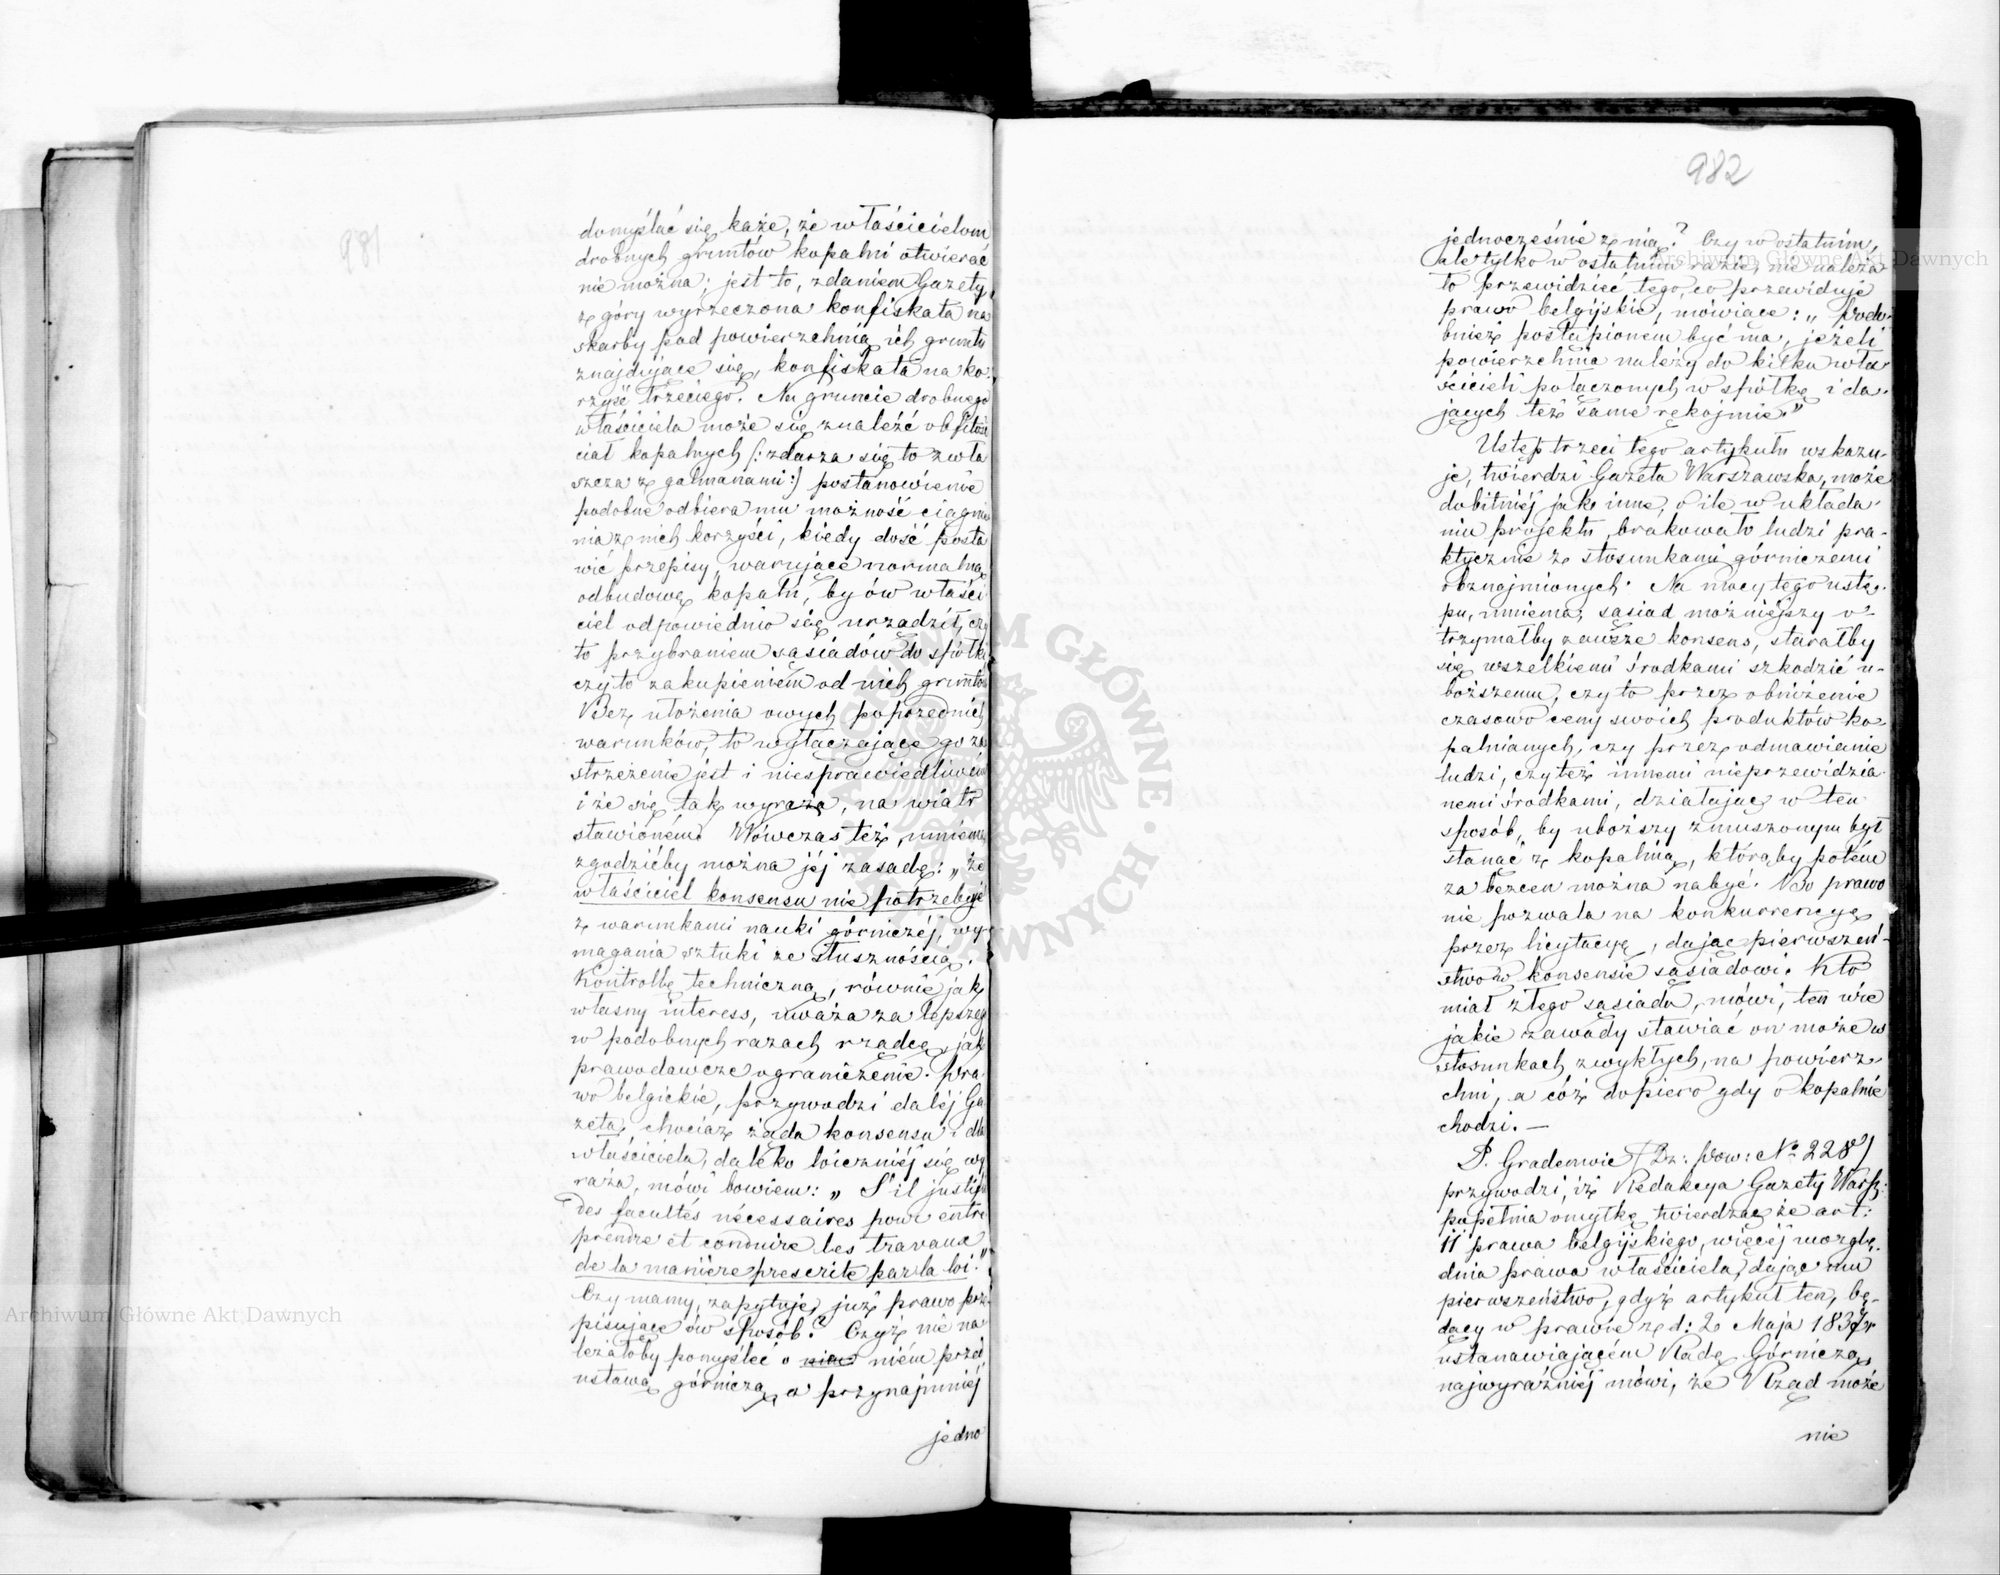 domyślać się każe, że właścicielom
drobnych gruntów kopalni otwierać
nie można; jest to, zdaniem Gazety,
z góry wyrzeczona konfiskata na
skarby pod powierzchnią ich gruntu
znajdujące się, konfiskata na ko-
rzyść trzeciego. Na gruncie drobnego
właściciela może się znaleźć obfitość
ciał kopalnych (: zdarza się to zwła
szcza z galmanami :) postanowienie
podobne odbiera mu możność ciągnie
nia z nich korzyści, kiedy dość posta
wić przepisy, warujące normalną
odbudowę kopalń, by ów właści
ciel odpowiednio się urządził, czy
to przybraniem sąsiadów do spółki
czy to zakupieniem od nich gruntów
Bez ułożenia owych poprzednich
warunków, to wyłączające go za
strzeżenie jest i niesprawiedliwém
i że się tak wyraża, na wiatr
stawioném. Wówczas też, mniema,
zgodzićby można jéj zasadę: „że
właściciel konsensu nie potrzebuje
z warunkami nauki górniczéj, wy-
magania sztuki ze słusznością.
Kontrollę techniczną, równie jak
własny interess, uważa za lepszego
w podobnych razach rządcę, jak
prawodawcze ograniczenie. Pra-
wo belgickie, przywodzi daléj Ga
zeta, chociaż żąda konsensu i dla
właściciela, daleko loiczniéj się wy
raża, mówi bowiem: „ S'il justifie
des facultés nécessaires pour entre
prendre et conduire les travaux
de la manière prescrite par la loi."
Czy mamy, zapytuje, już prawo prze-
pisujące ów sposób? Czyż nie na
leżałoby pomyśleć o niém przed
ustawą górniczą, a przynajmniéj
jedno
982
jednocześnie z nią? Czy w ostatnim,
ale tylko w ostatnim razie, nie należa
ło przewidzieć tego, co przewiduje
prawo belgijskie, mówiące: „ Podo-
bnież postąpioném być ma, jeżeli
powierzchnia należy do kilku wła-
ścicieli połączonych w spółkę i da-
jących też same rękojmie."
Ustęp trzeci tego artykułu wskazu-
je, twierdzi Gazeta Warszawska, może
dobitniéj jak inne, o ile w układa-
niu projektu, brakowało ludzi pra-
ktycznie ze stosunkami górniczemi
obznajmionych. Na mocy tego ustę-
pu, mniema, sąsiad możniejszy o-
trzymałby zawsze konsens, starałby
się wszelkiemi środkami szkodzić u-
boższemu, czy to przez obniżenie
czasowo ceny swoich produktów ko-
palnianych, czy przez odmawianie
ludzi, czy też innemi nieprzewidzia-
nemi środkami, działając w ten
sposób, by uboższy zmuszonym był
stanąć z kopalnią, którąby potém
za bezcen można nabyć. Bo prawo
nie pozwala na konkurrencyę
przez licytacyę, dając pierwszeń-
stwo w konsensie sąsiadowi. Kto
miał złego sąsiada, mówi, ten wie
jakie zawady stawiać on może w
stosunkach zwykłych, na powierz-
chni, a cóż dopiero gdy o kopalnie
chodzi. —
P. Gradenwic (Dz: Pow: № 228)
przywodzi, iż Redakcya Gazety Warsz:
popełnia omyłkę twierdząc że art:
11 prawa belgijskiego, więcéj uwzglę-
dnia prawa właściciela, dając mu
pierwszeństwo, gdyż artykuł ten, bę-
dący w prawie z d: 2 Maja 1837 r
ustanawiającém Radę Górniczą,
najwyraźniéj mówi, że Rząd może
nie
981
Archiwum Główne Akt Dawnych
Archiwum Główne Akt Dawnych
ARCHIWUM GŁÓWNE AKT DAWNYCH